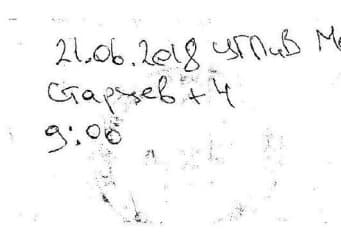 21.06.2018 ЦППиВ М
Старуев + 4
9:06